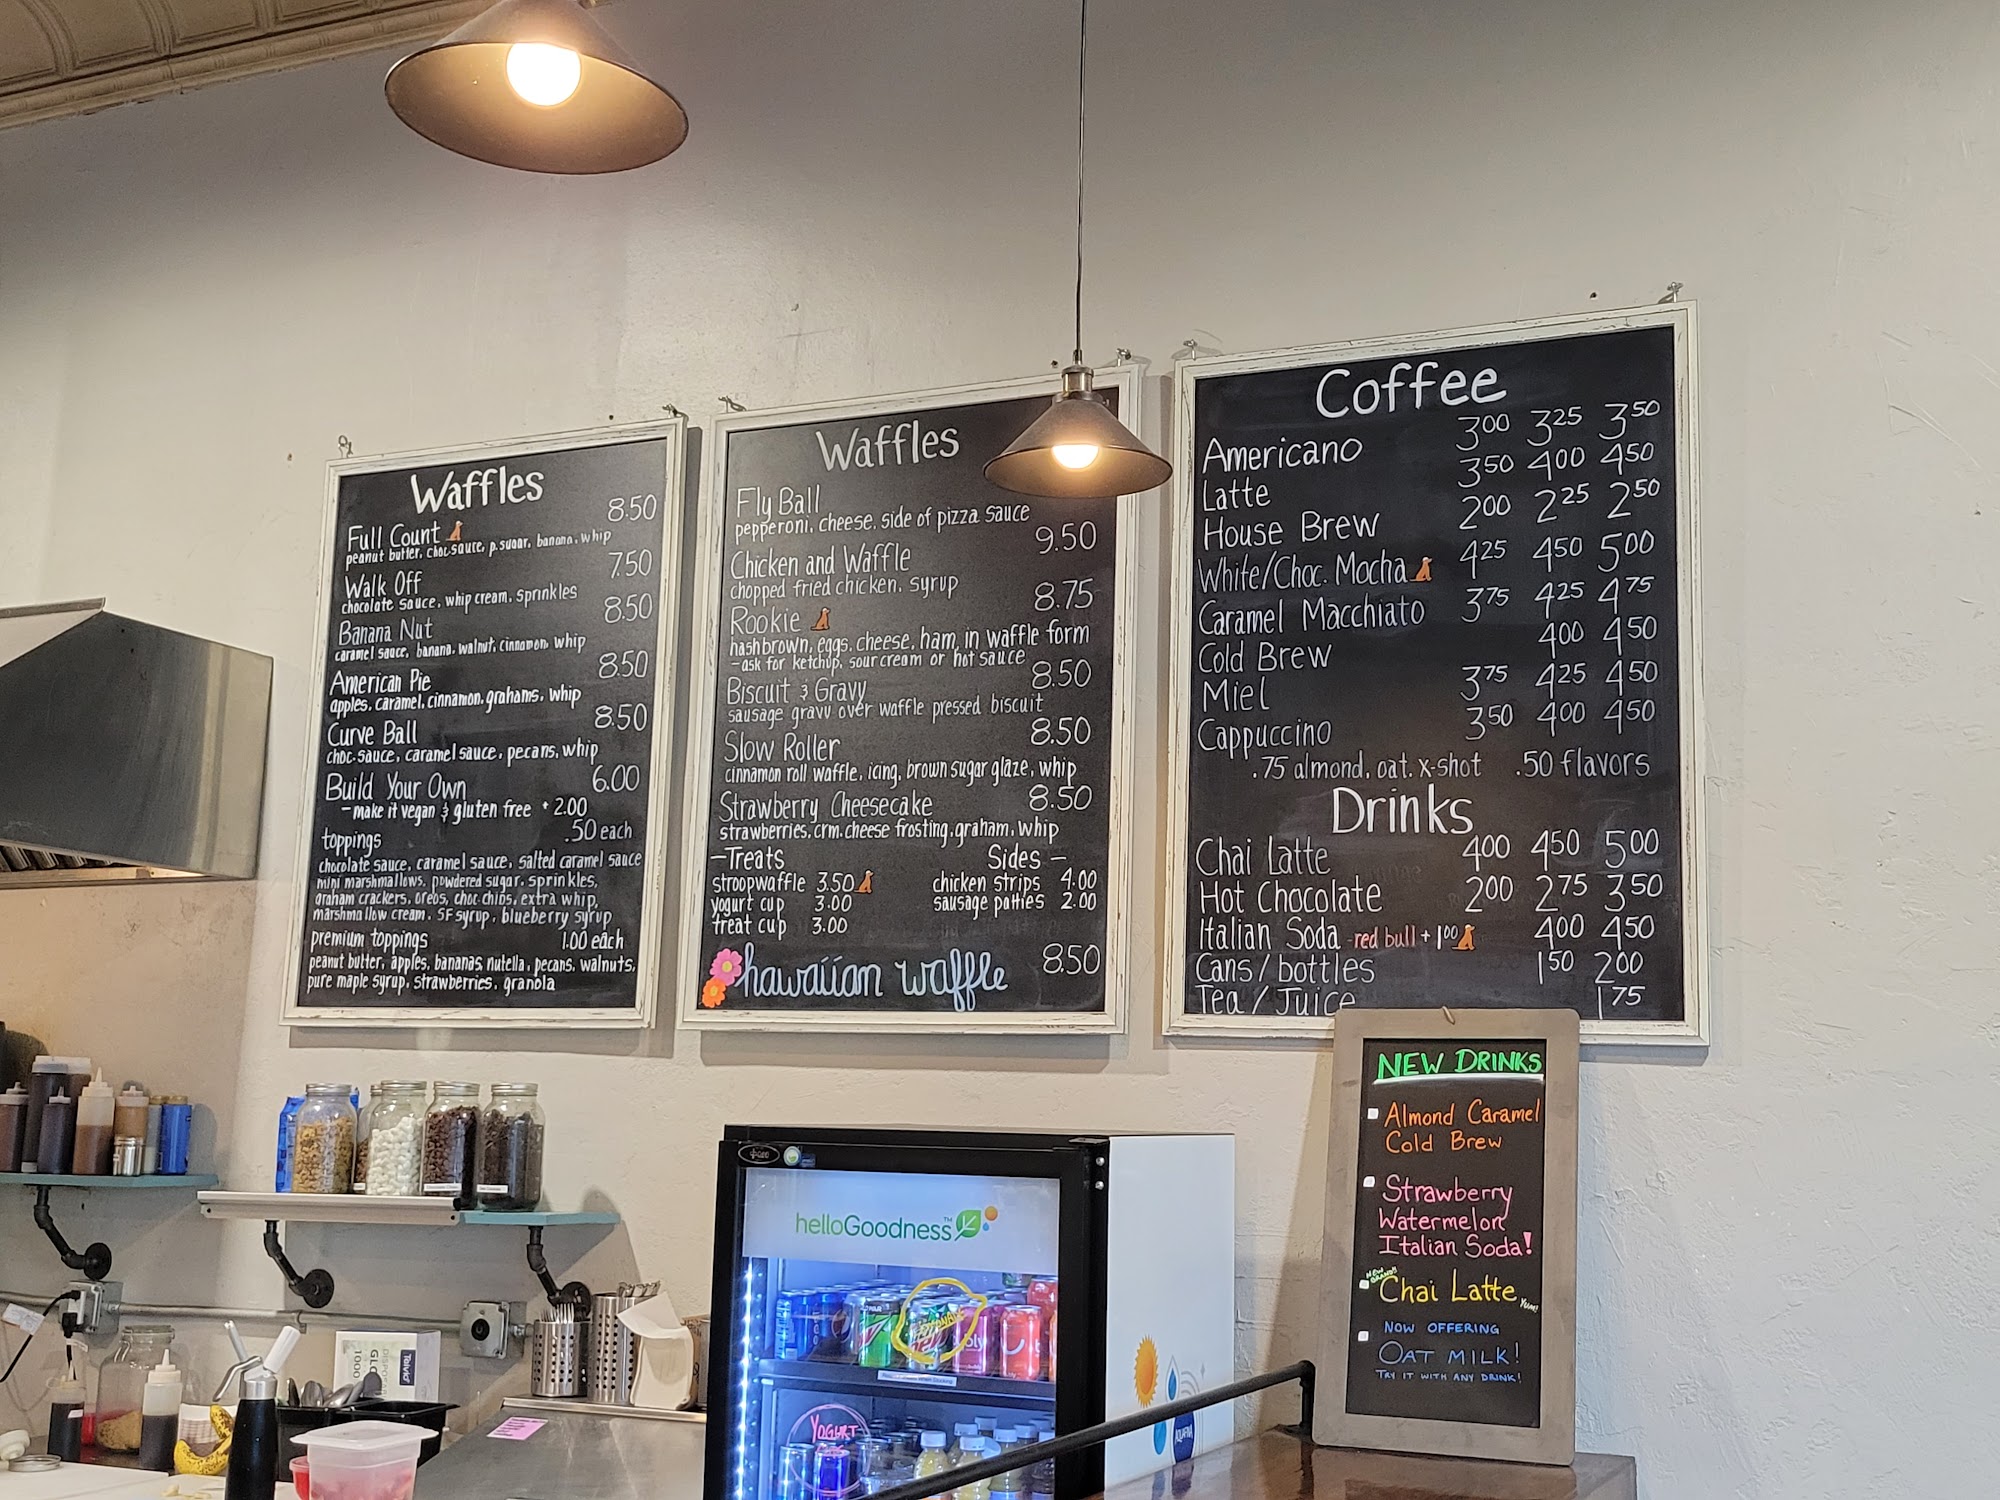 Waffles
Full Count 8.50
peanut butter, choc sauce, p. sugar, banana, whip
Walk Off 7.50
chocolate sauce, whip cream, sprinkles
Banana Nut 8.50
caramel sauce, banana, walnut, cinnamon, whip
American Pie 8.50
apples, caramel, cinnamon, grahams, whip
Curve Ball 8.50
choc. sauce, caramel sauce, pecans, whip
Build Your Own 6.00
- make it vegan & gluten free + 2.00
toppings .50 each
chocolate sauce, caramel sauce, salted caramel sauce
mini marshmallows, powdered sugar, sprinkles,
graham crackers, oreos, choc chips, extra whip,
marshmallow cream, SF syrup, blueberry syrup
premium toppings 1.00 each
peanut butter, apples, bananas, nutella, pecans, walnuts,
pure maple syrup, strawberries, granola
Waffles
Fly Ball
pepperoni, cheese, side of pizza sauce
Chicken and Waffle 9.50
chopped fried chicken, syrup
Rookie 8.75
hashbrown, eggs, cheese, ham, in waffle form
- ask for ketchup, sour cream or hot sauce
Biscuit & Gravy 8.50
sausage gravy over waffle pressed biscuit
Slow Roller 8.50
cinnamon roll waffle, icing, brown sugar glaze, whip
Strawberry Cheesecake 8.50
strawberries, crm. cheese frosting, graham, whip
- Treats Sides -
stroopwaffle 3.50 chicken strips 4.00
yogurt cup 3.00 sausage patties 2.00
treat cup 3.00
hawaiian waffle 8.50
Coffee
Americano 3.00 3.25 3.50
Latte 3.50 4.00 4.50
House Brew 2.00 2.25 2.50
White/Choc. Mocha 4.25 4.50 5.00
Caramel Macchiato 3.75 4.25 4.75
Cold Brew 4.00 4.50
Miel 3.75 4.25 4.50
Cappuccino 3.50 4.00 4.50
.75 almond, oat, x-shot .50 flavors
Drinks
Chai Latte 4.00 4.50 5.00
Hot Chocolate 2.00 2.75 3.50
Italian Soda - red bull + 1.00 4.00 4.50
Cans/bottles 1.50 2.00
Tea/Juice 1.75
NEW DRINKS
Almond Caramel
Cold Brew
Strawberry
Watermelon
Italian Soda!
NEW BRAND!!
Chai Latte Yum!
NOW OFFERING
OAT MILK!
TRY IT WITH ANY DRINK!
helloGoodness™
YOGURT
AQUAFINA